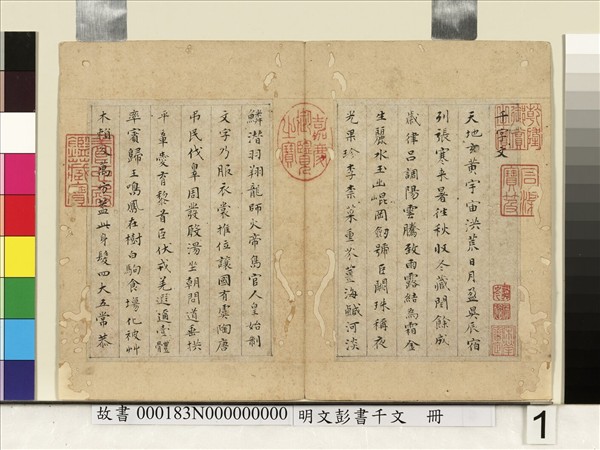 千字文
天地玄黃宇宙洪荒日月盈昃辰宿
列張寒来暑往秋收冬藏閏餘成
歲律呂調陽雲騰致雨露結為霜金
生麗水玉出崐岡劒號巨闕珠稱夜
光果珍李柰菜重芥薑海醎河淡
鱗潛羽翔龍師火帝鳥官人皇始制
文字乃服衣裳推位讓國有虞陶唐
弔民伐辠周發殷湯坐朝問道垂拱
平章愛育黎首臣伏戎羌遐邇壹體
率賓歸王鳴鳳在樹白駒食場化被艸
木賴及萬方蓋此身髮四大五常恭
嘉慶御覽之寶
故書 000183N000000000 明文彭書千文 冊
1